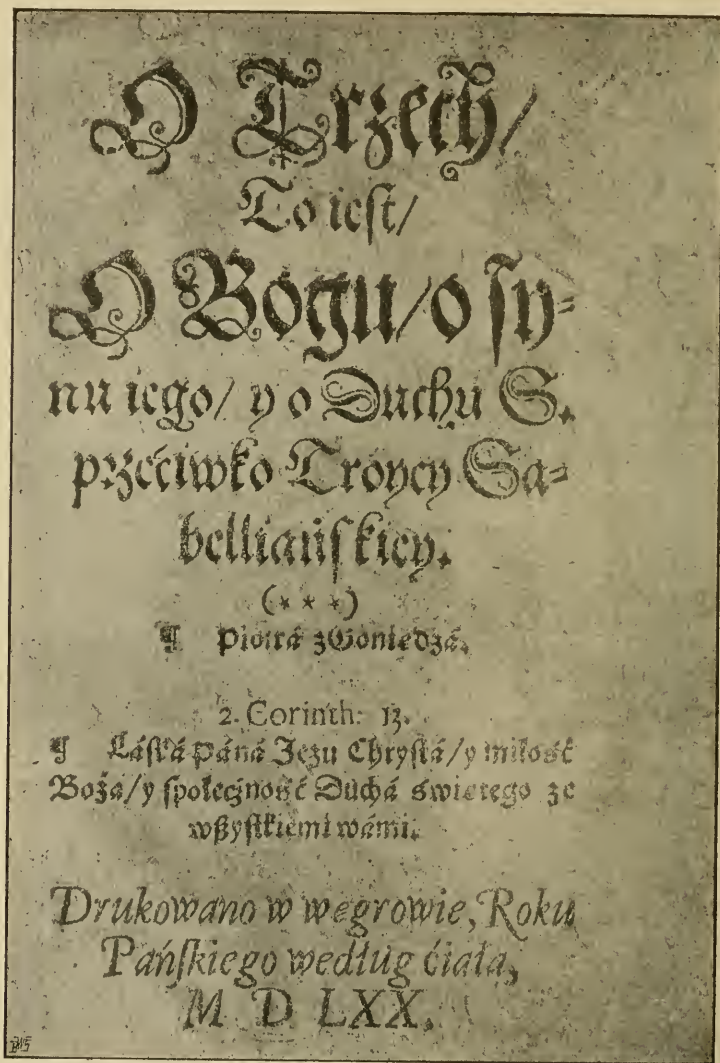 O Trzech/
To ieſt/
O Bogu/o ſy⸗
nu iego/ y o Duchu S.
przećiwko Troycy Sa⸗
belliańſkiey.
(* * *)
¶ Piotrá z Goniedzá.
2. Corinth: 13.
¶ Láſká páná Jezu Chryſtá/y miłość
Boża/y ſpołeczność Duchá świętego ze
wßyſtkiemi wámi.
Drukowano w węgrowie, Roku
Pańſkiego według ćiáłá,
M D LXX.